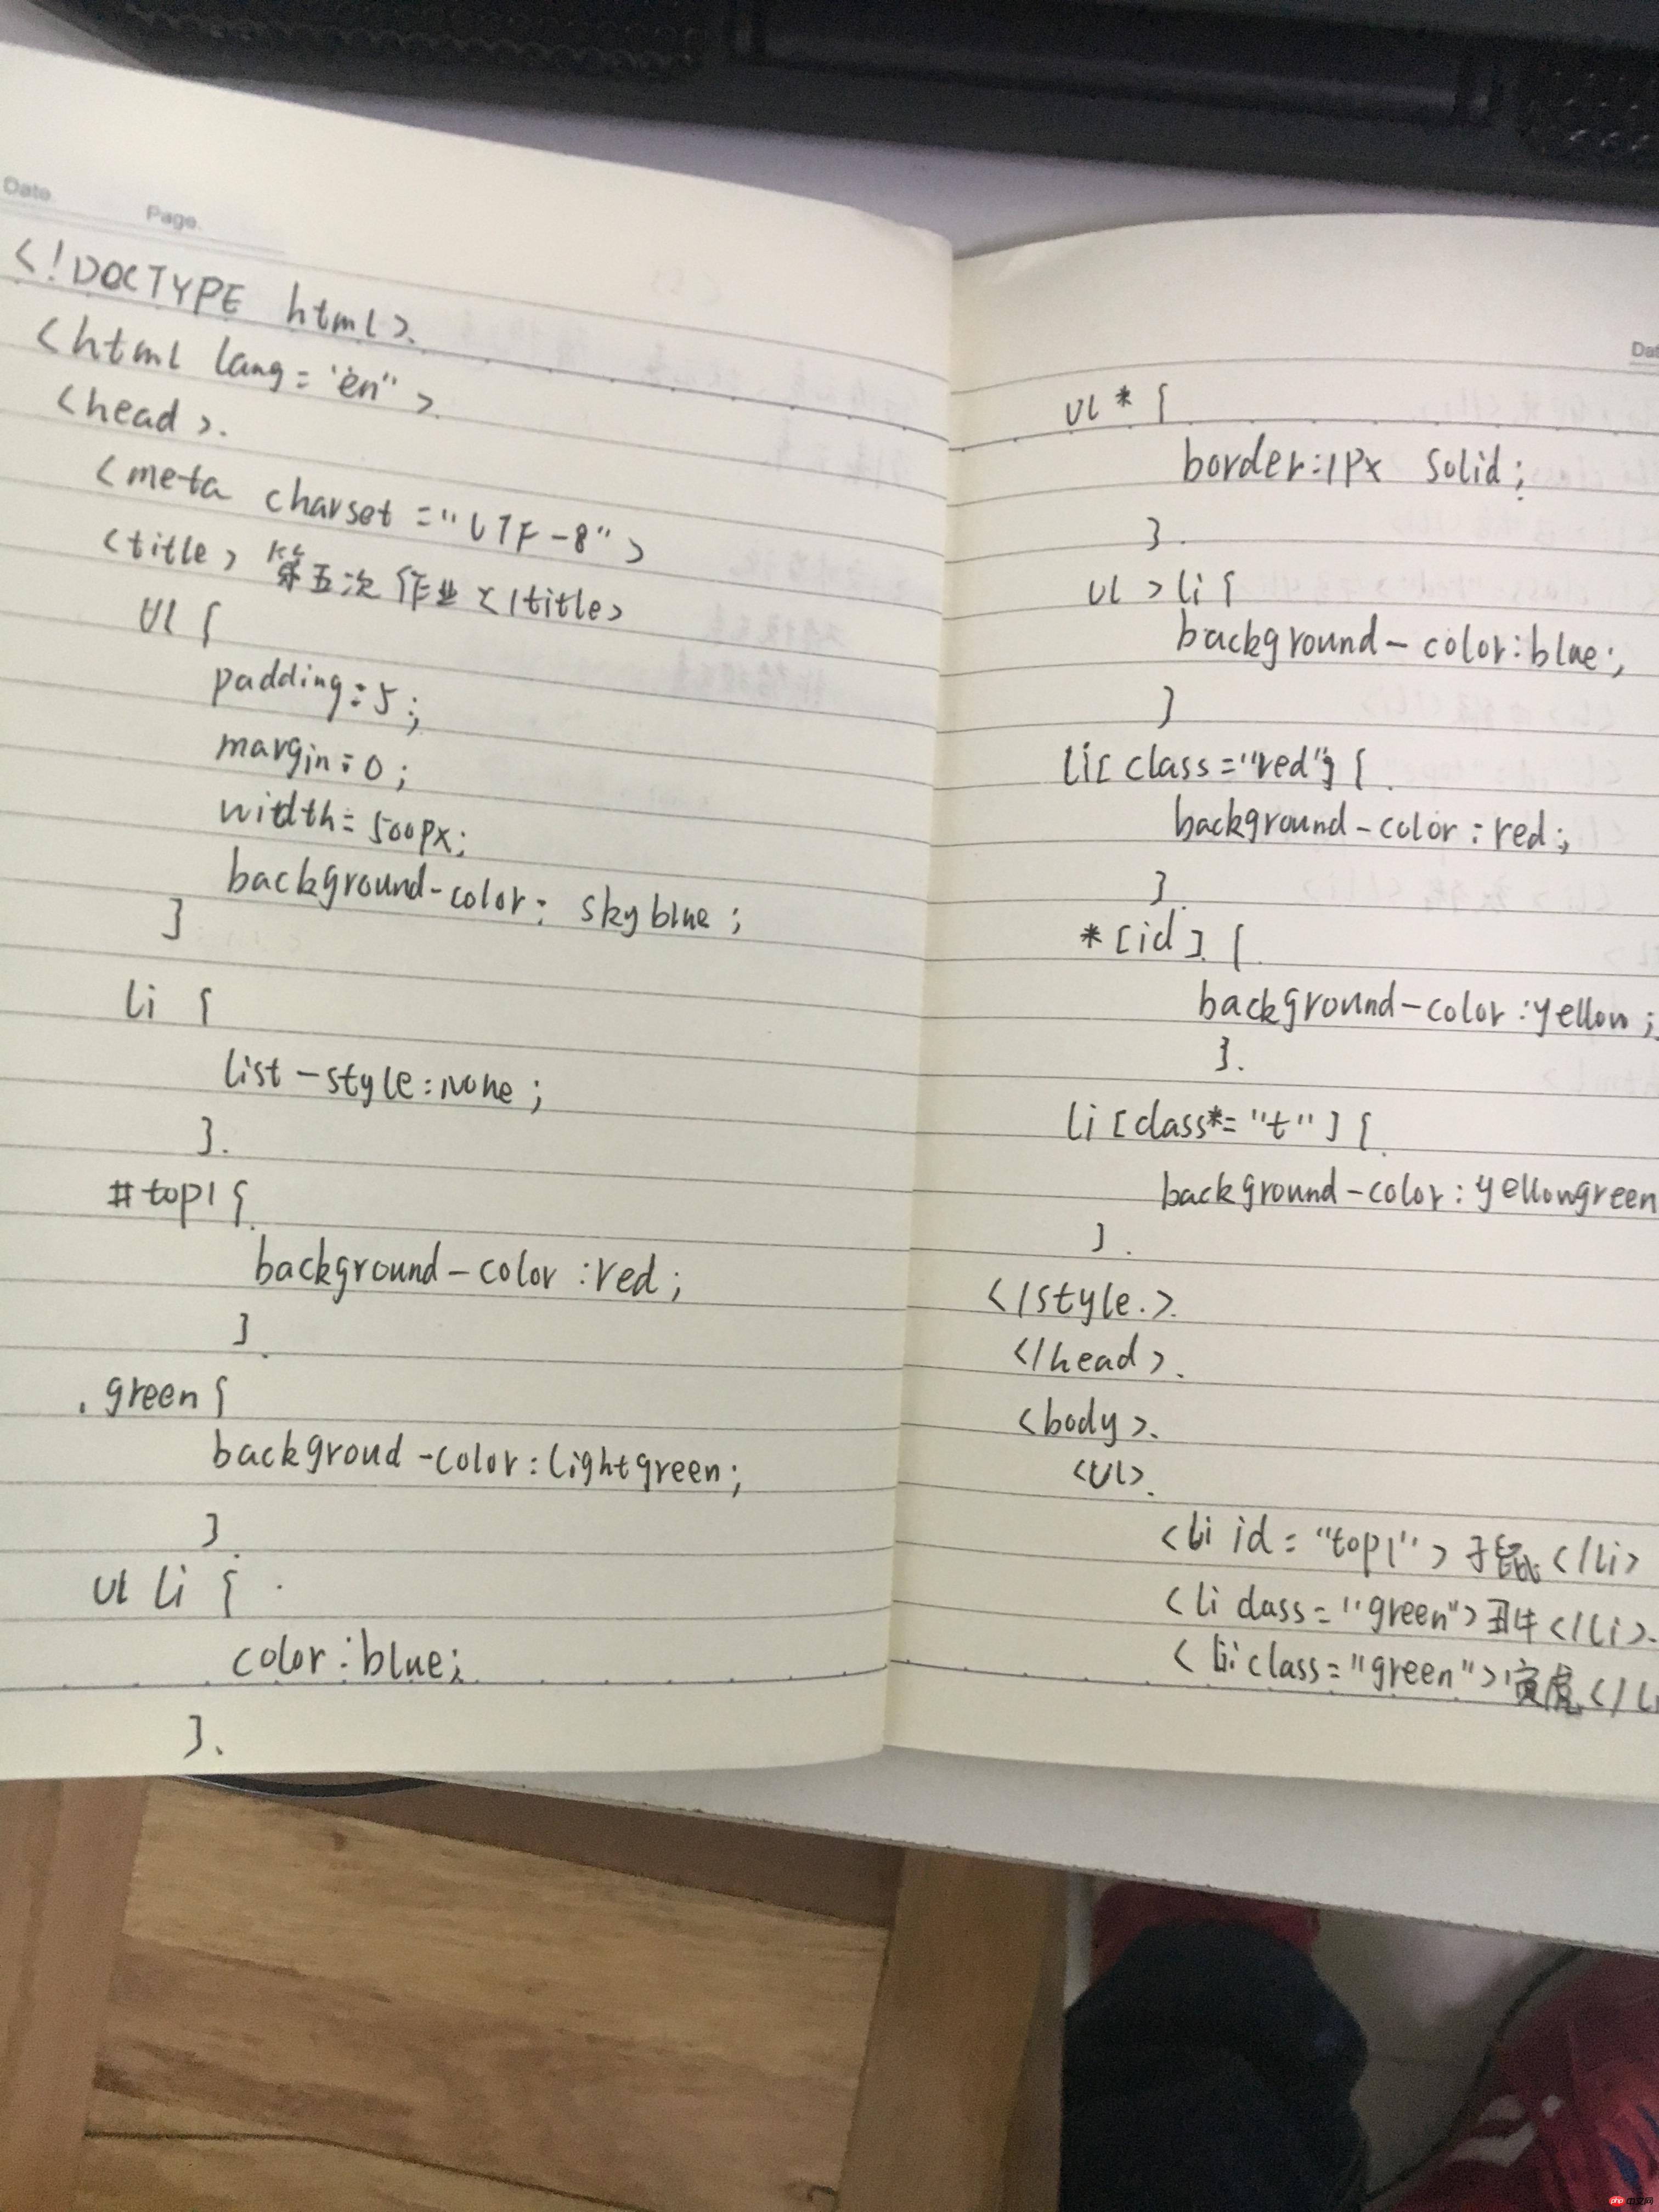 Date
Page.
<!DOCTYPE html>
<html lang="en">
<head>
<meta charset="UTF-8">
<title>第五次作业</title>
ul {
padding:5;
margin:0;
width:500px;
background-color: skyblue;
}
li {
list-style:none;
}
#top1{
background-color:red;
}
.green{
backgroud-color:lightgreen;
}
ul li {
color:blue;
}
Dat
ul * {
border:1px solid;
}
ul >li{
background-color:blue;
}
li[class="red"]{
background-color:red;
}
*[id]{
background-color:yellow;
}
li[class*="t"]{
background-color:yellowgreen
}
</style>
</head>
<body>
<ul>
<li id="top1">子鼠</li>
<li class="green">丑牛</li>
<li class="green">寅虎</li
php 中文网